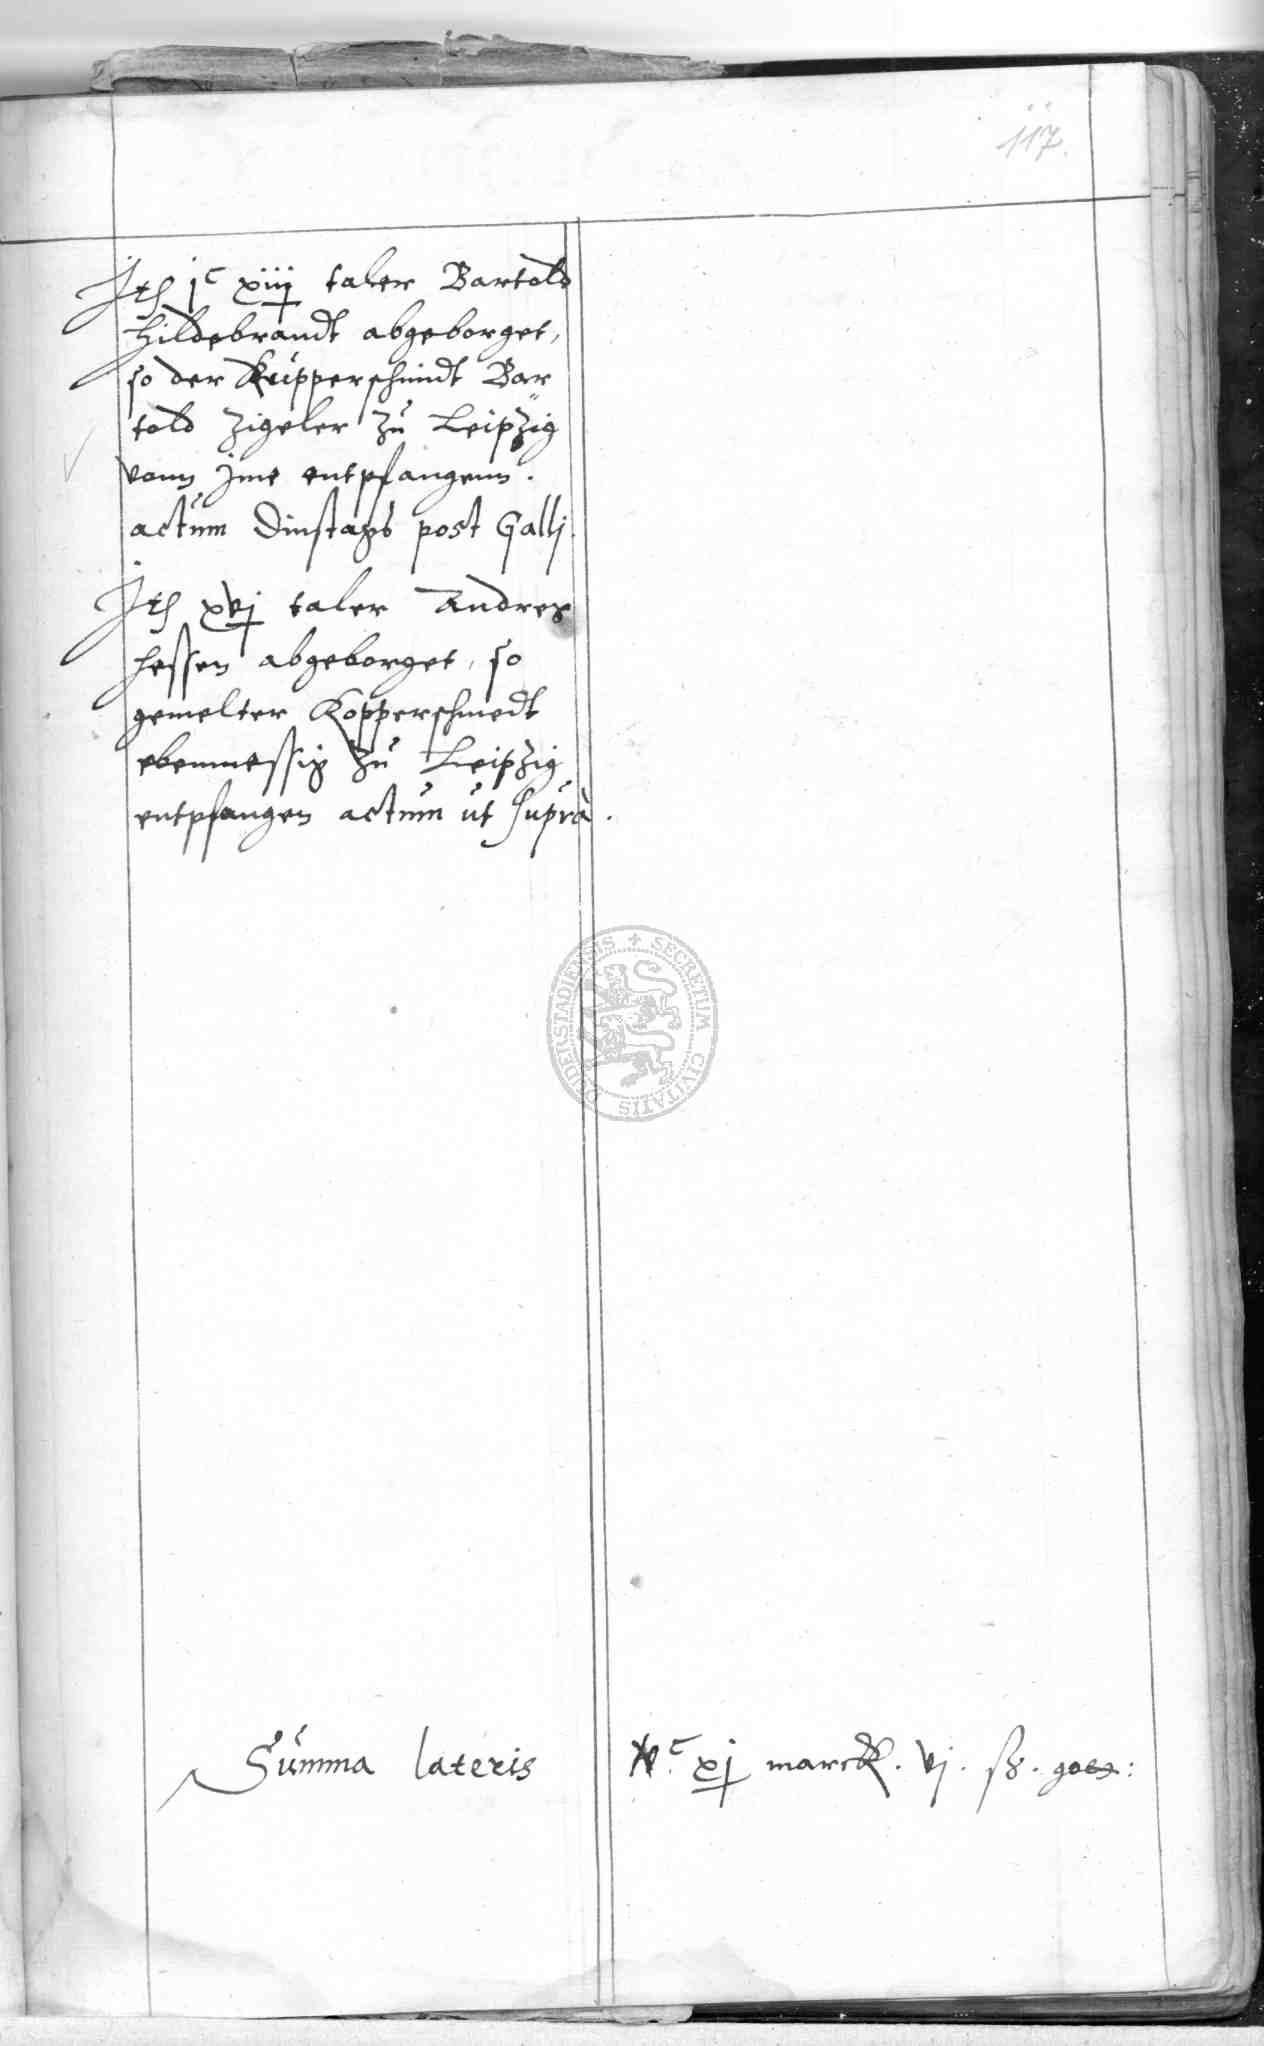 117.
Itē jc xiiij taler Bartold
Hildebrandt abgeborget,
so der Küpperschmidt Bar
told Zigeler zu Leipzig
vonn jme entpfangenn.
actum Dinstags post Galli.
Itē xvj taler Andres
Hessen abgeborget, so
gemelter Kopperschmedt
ebenmessig zu Leipzig
entpfangen actum ut supra.
SECRETUM CIVITATIS DUDERSTADIENSIS
Summa lateris vc xj marck. vj. ß.